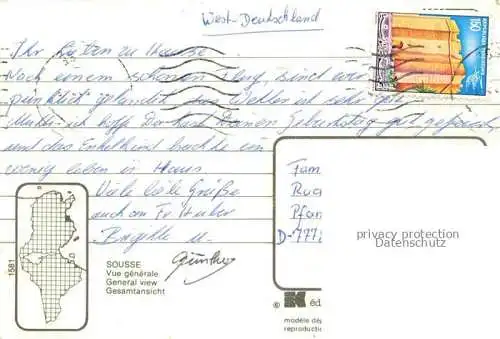 West-Deutschland
Ihr Lieben zu Hause.
Nach einem schönen Flug, sind wir
pünktlich gelandet. Das Wetter ist sehr gut.
Mutter ich hoffe Du hast Deinen Geburtstag gut gefeiert
und das Enkelkind brachte ein
wenig leben in Haus
Viele liebe Grüße
auch an Fr. Huber
Brigitte u.
Günther
150
REPUBLIQUE TUNISIENNE
Fam
Ruc
Pfan
D-777
privacy protection
Datenschutz
1581
SOUSSE
Vue générale
General view
Gesamtansicht
© éd
modèle dép
reproductio